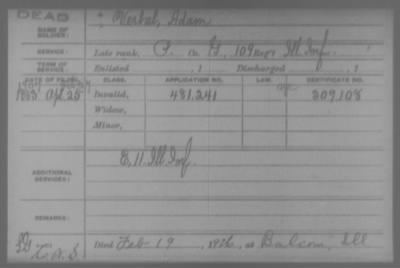 DEAD
NAME OF SOLDIER:
Verbal, Adam
SERVICE:
Late rank, P. Co. G, 109 Reg't Ill Inf.
TERM OF SERVICE:
Enlisted , 1 Discharged , 1
DATE OF FILING. CLASS. APPLICATION NO. LAW. CERTIFICATE NO.
Apl 25 Invalid, 481,241 309,108
Widow,
Minor,
ADDITIONAL SERVICES:
E, 11 Ill Inf.
REMARKS:
Died Feb 19, at Balcom, Ill